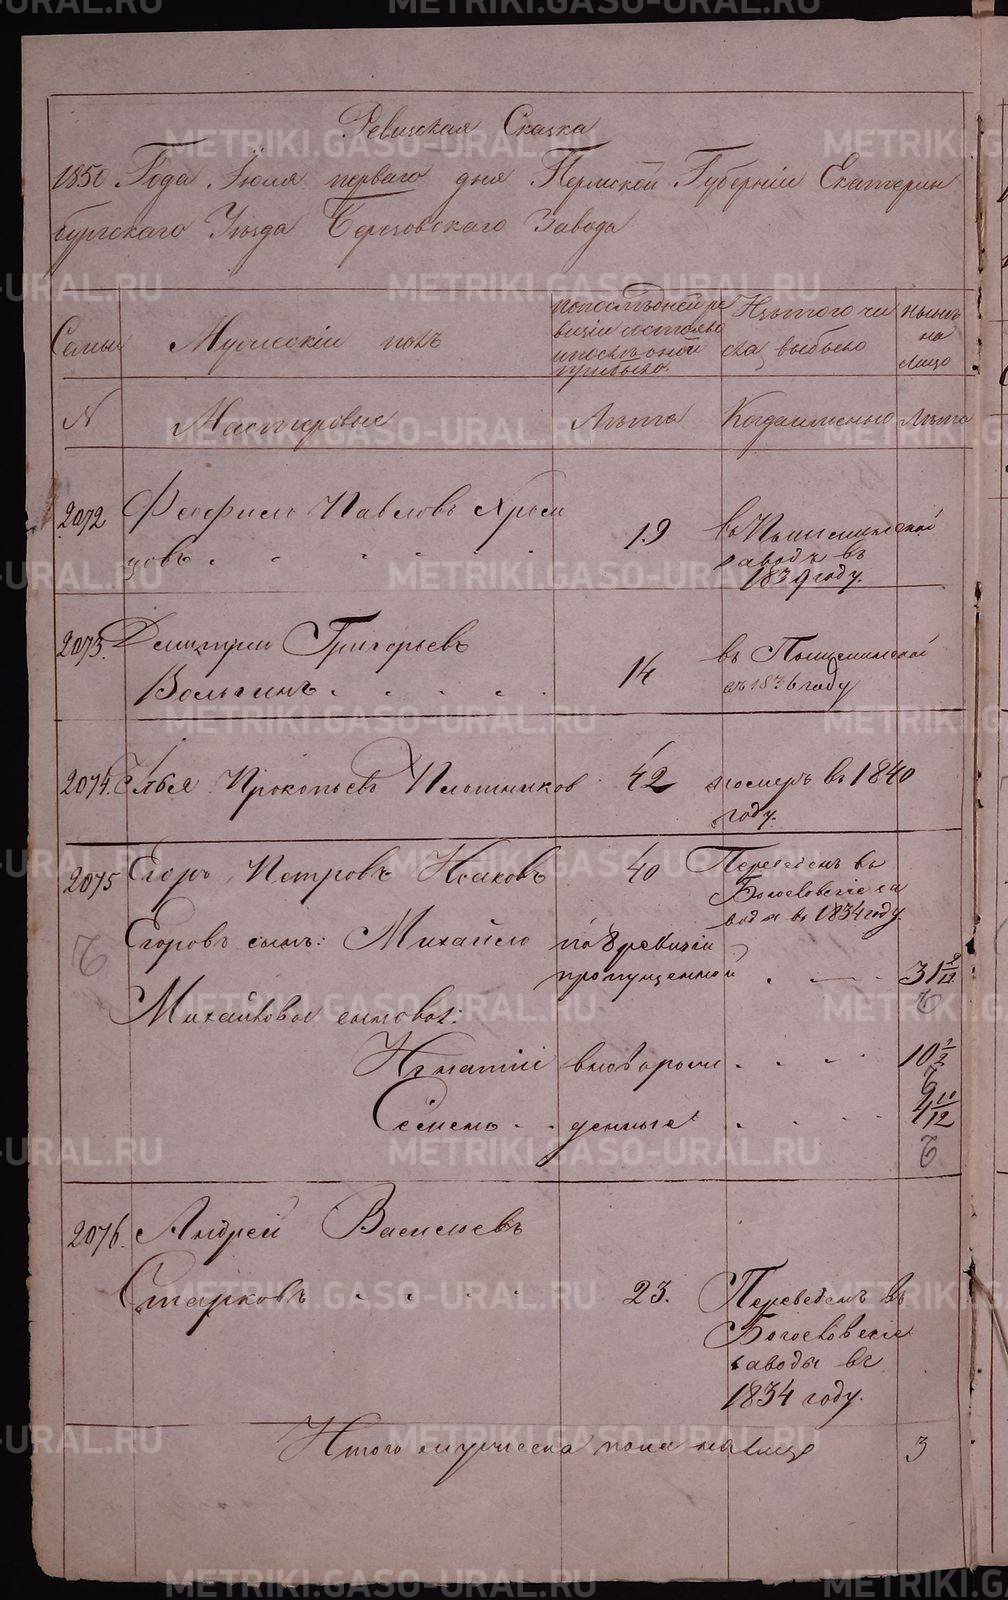 Ревизская Сказка
1850 Года Іюля перваго дня Пермской Губерніи Екатерин
бургскаго Уѣзда Березовскаго Завода
Семьи
Мужескій полъ
по последней ре
визіи состояло
и после оной
прибыло.
Изъ того чи
сла выбыло
Нынѣ
на
лицо
N
Мастеровые
Лѣта
Когда именно
Лѣта
2072
Феофилъ Павловъ
зовъ . . . . . .
19
въ Пышминской
заводъ въ
1839 году.
2073.
Дмитрій Григорьевъ
. . . . .
14
въ Пышминской
въ 1836 году
2074.
Илья Прокопьевъ Плотников
42
померъ въ 1840
году.
2075
Егоръ Петровъ Исаковъ
40
Переведенъ въ
Богословскіе за
воды въ 1834 году.
Егоровъ сынъ: Михайло
по 8 ревизіи
пропущенной
. —
31
Михайловы сыновья:
Игнатій
вновь рож
. . . .
10 1/2
Семенъ . .
денные
. . . .
11/12
2076.
Андрей Васильевъ
Старковъ . . . .
23.
Переведенъ въ
Богословскіе
заводы въ
1834 году.
Итого мужеска пола на лицо
3
METRIKI.GASO-URAL.RU